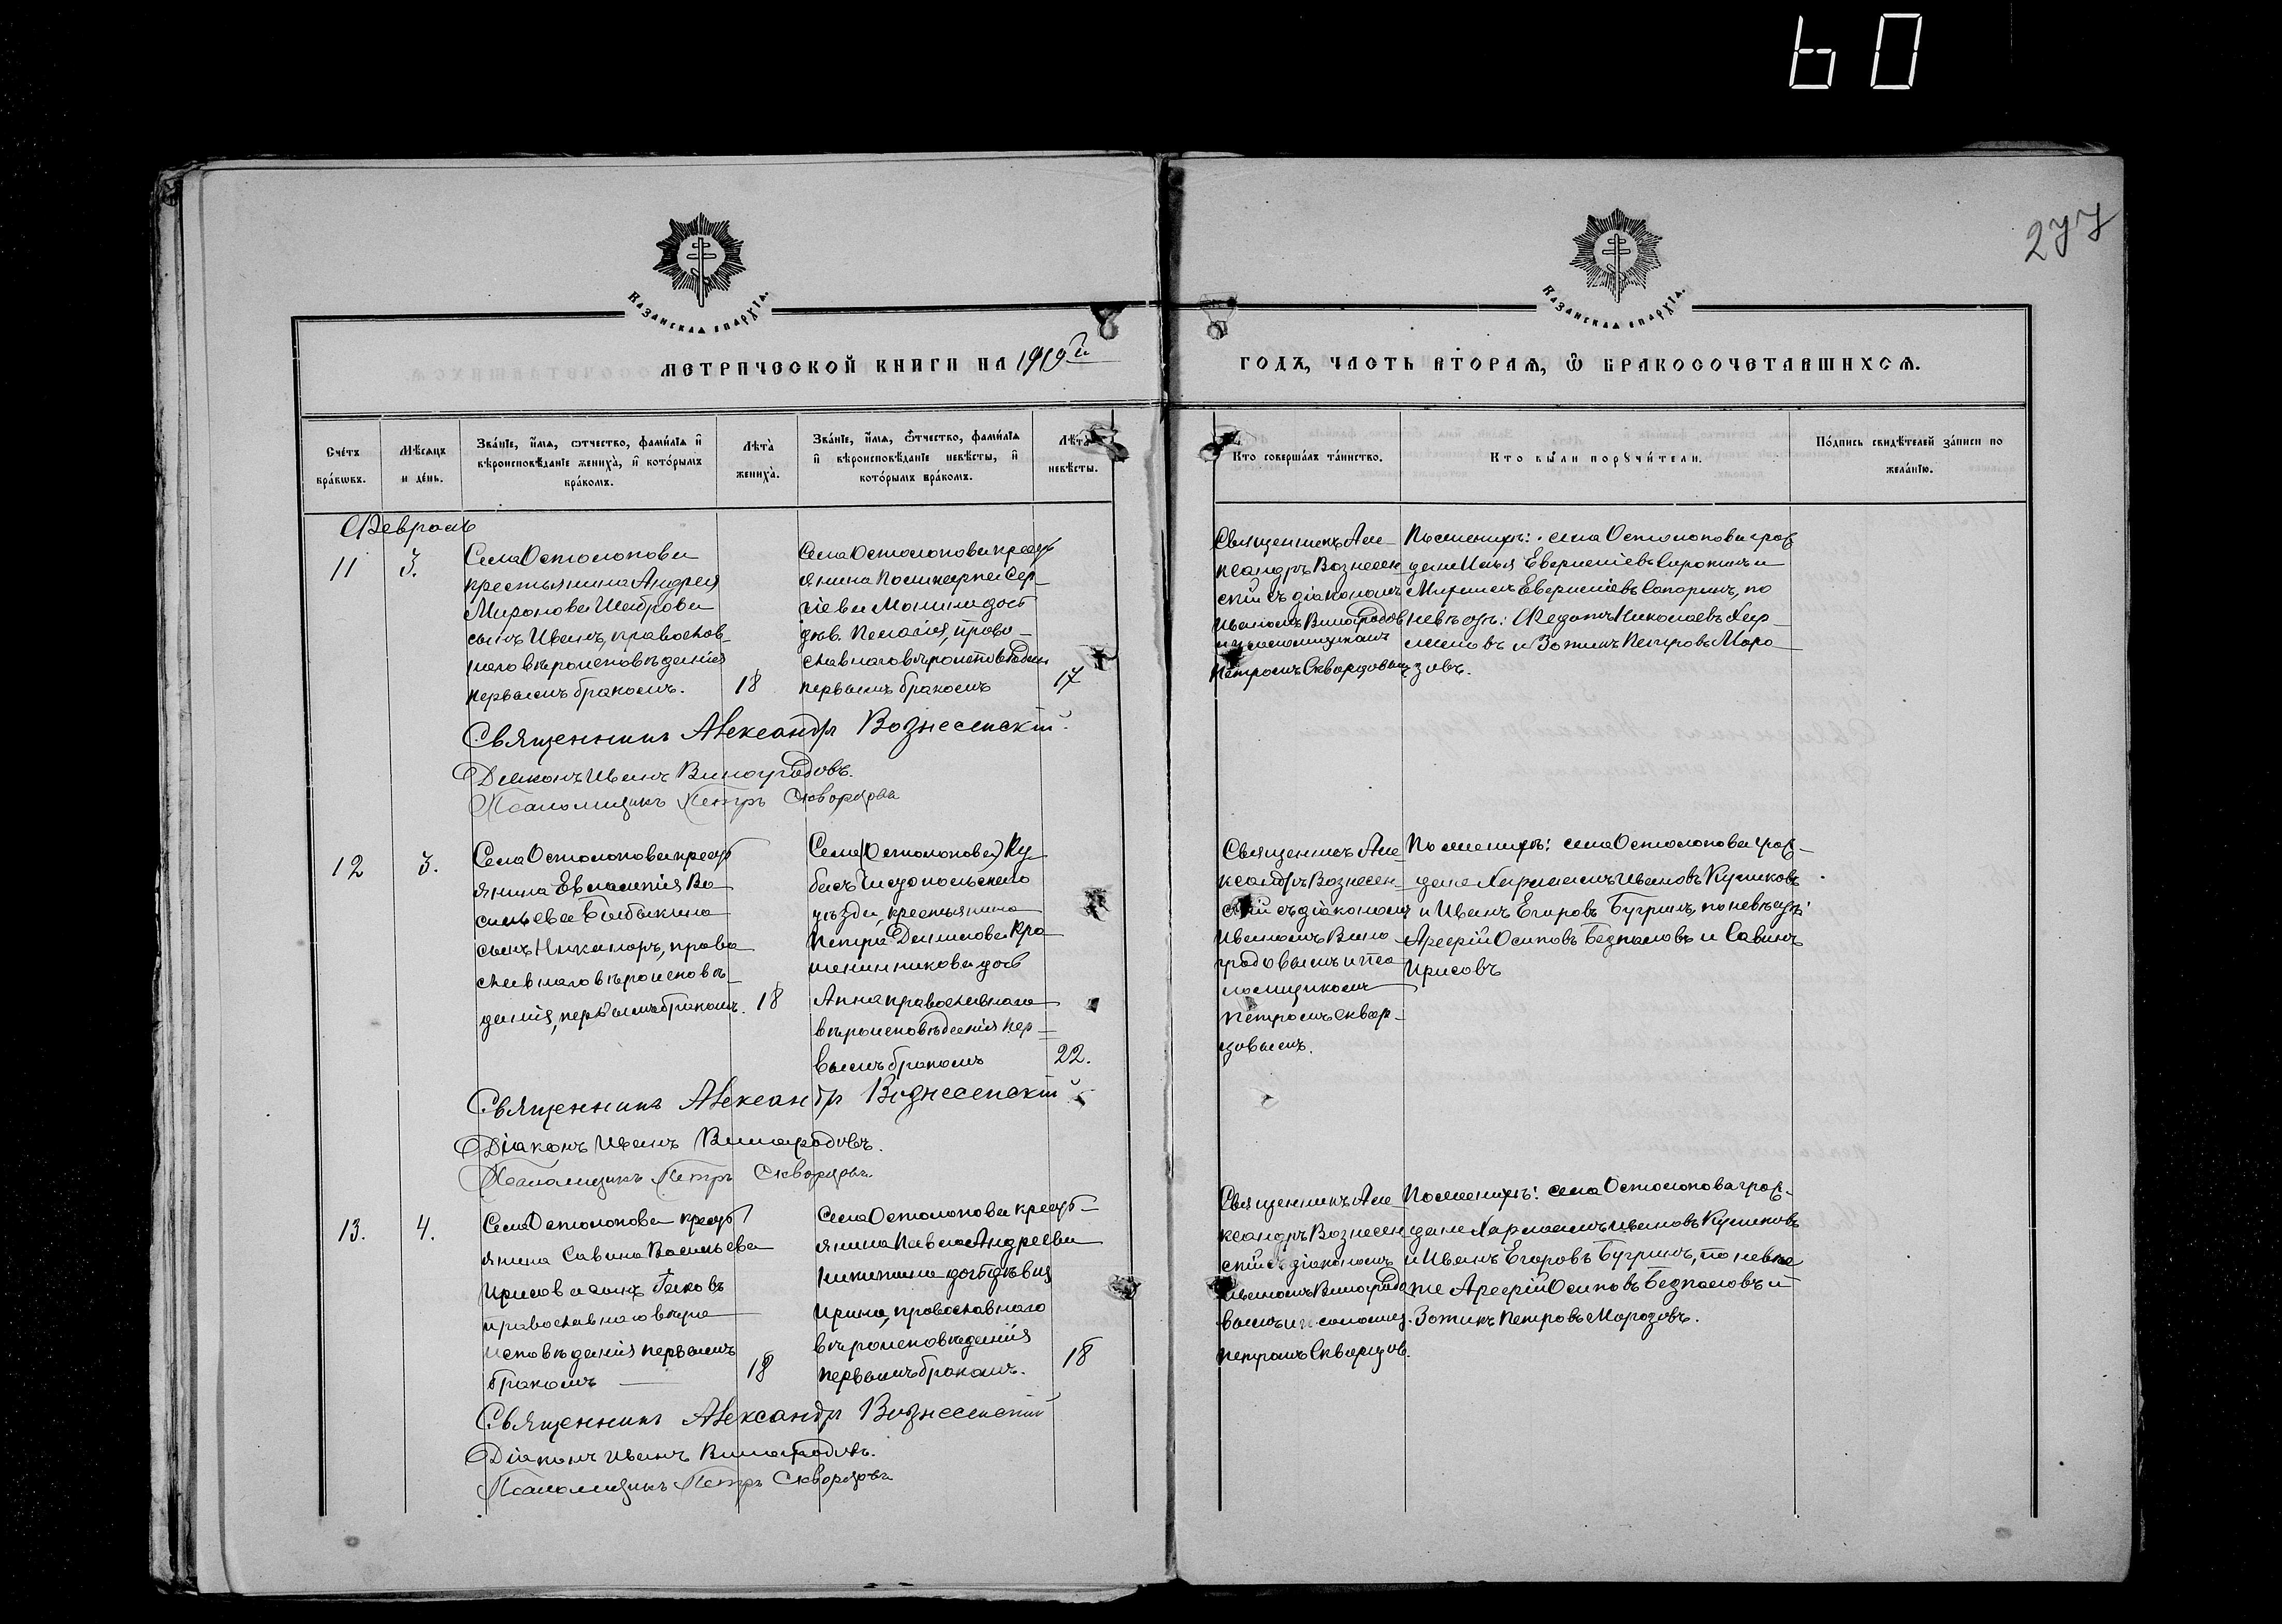 60
277
Казанская епархїа.
Казанская епархїа.
Метрической книги на 1919й
годъ, часть вторая, ѿ бракосочетавшихся.
Счетъ браковъ.
Мѣсяцъ и день.
Званїе, имя, отчество, фамилїя и вѣроисповѣданїе жениха, и которымъ бракомъ.
Лѣта жениха.
Званїе, имя, отчество, фамилїя и вѣроисповѣданїе невѣсты, и которымъ бракомъ.
Лѣта невѣсты.
Кто совершалъ таинство.
Кто были поручители.
Подпись свидѣтелей записи по желанїю.
Февраль
11
3.
Села Остолопова
крестьянина Андрея
Миронова Шаброва
сынъ Иванъ, православ-
наго вѣроисповѣданія
первымъ бракомъ.
18
Села Остолопова крест
янина Поликарпа Сер-
гіева дочь
дѣв. Пелагія, право-
славнаго вѣроисповѣдан
первымъ бракомъ
17
Священникъ Але-
ксандръ Вознесен-
скій съ діакономъ
Иваномъ Виноградов
и псаломщикомъ
Петромъ Скворцовым
По женихѣ: села Остолопова граж
дане Илья Евгеніевъ Сироткинъ и
Евгеніевъ, по
невѣстѣ: Федотъ Николаевъ
и Зотикъ Петровъ Моро-
зовъ.
Священникъ Александръ Вознесенскій.
Діаконъ Иванъ Виноградовъ.
Псаломщикъ Петръ Скворцовъ
12
3.
Села Остолопова крест
янина Евлампія Ва-
сильева Балбыкина
сынъ Никаноръ, право
славнаго вѣроисповѣ-
данія, первымъ бракомъ.
18
Села (Остолопова) Ку-
басъ Чистопольскаго
уѣзда, крестьянина
Петра Данилова Кра-
шенинникова дочь
Анна православнаго
вѣроисповѣданія пер-
вымъ бракомъ
22.
Священникъ Але-
ксандръ Вознесен-
скій съ діакономъ
Иваномъ Вино-
градовымъ и пса-
ломщикомъ
Петромъ Сквор-
цовымъ.
По женихѣ: села Остолопова граж-
дане Харлампъ Ивановъ Куликовъ
и Иванъ Егоровъ Бугринъ, по невѣстѣ:
Арефій Осиповъ Безпаловъ и Савинъ
Ирисовъ
Священникъ Александръ Вознесенскій
Діаконъ Иванъ Виноградовъ.
Псаломщикъ Петръ Скворцовъ
13.
4.
Села Остолопова крест
янина Савина Васильева
Ирисова сынъ Яковъ
православнаго вѣро
исповѣданія первымъ
бракомъ
18
Села Остолопова крест-
янина Павла Андреева
Никитина дочь дѣвица
Ирина, православнаго
вѣроисповѣданія
первымъ бракомъ.
18
Священникъ Але-
ксандръ Вознесен
скій съ діакономъ
Иваномъ Виноградо
вымъ и псаломщ.
Петромъ Скворцов.
По женихѣ: села Остолопова граж-
дане Харлампъ Ивановъ Куликовъ
и Иванъ Егоровъ Бугринъ, по невѣс
те Арефій Осиповъ Безпаловъ и
Зотикъ Петровъ Морозовъ.
Священникъ Александръ Вознесенскій
Діаконъ Иванъ Виноградовъ.
Псаломщикъ Петръ Скворцовъ